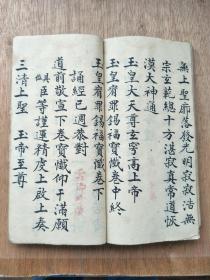 無上聖廓落發光明寂寂浩無
宗玄範總十方湛寂真常道恢
漠大神通
玉皇大天尊玄穹高上帝
玉皇宥罪錫福寶懺卷中終
玉皇宥罪錫福寶懺卷下
誦經已週恭對
道前敬宣下卷寶懺仰干滿願
具臣等謹運精虔上啟上奏
三清上聖 玉帝至尊